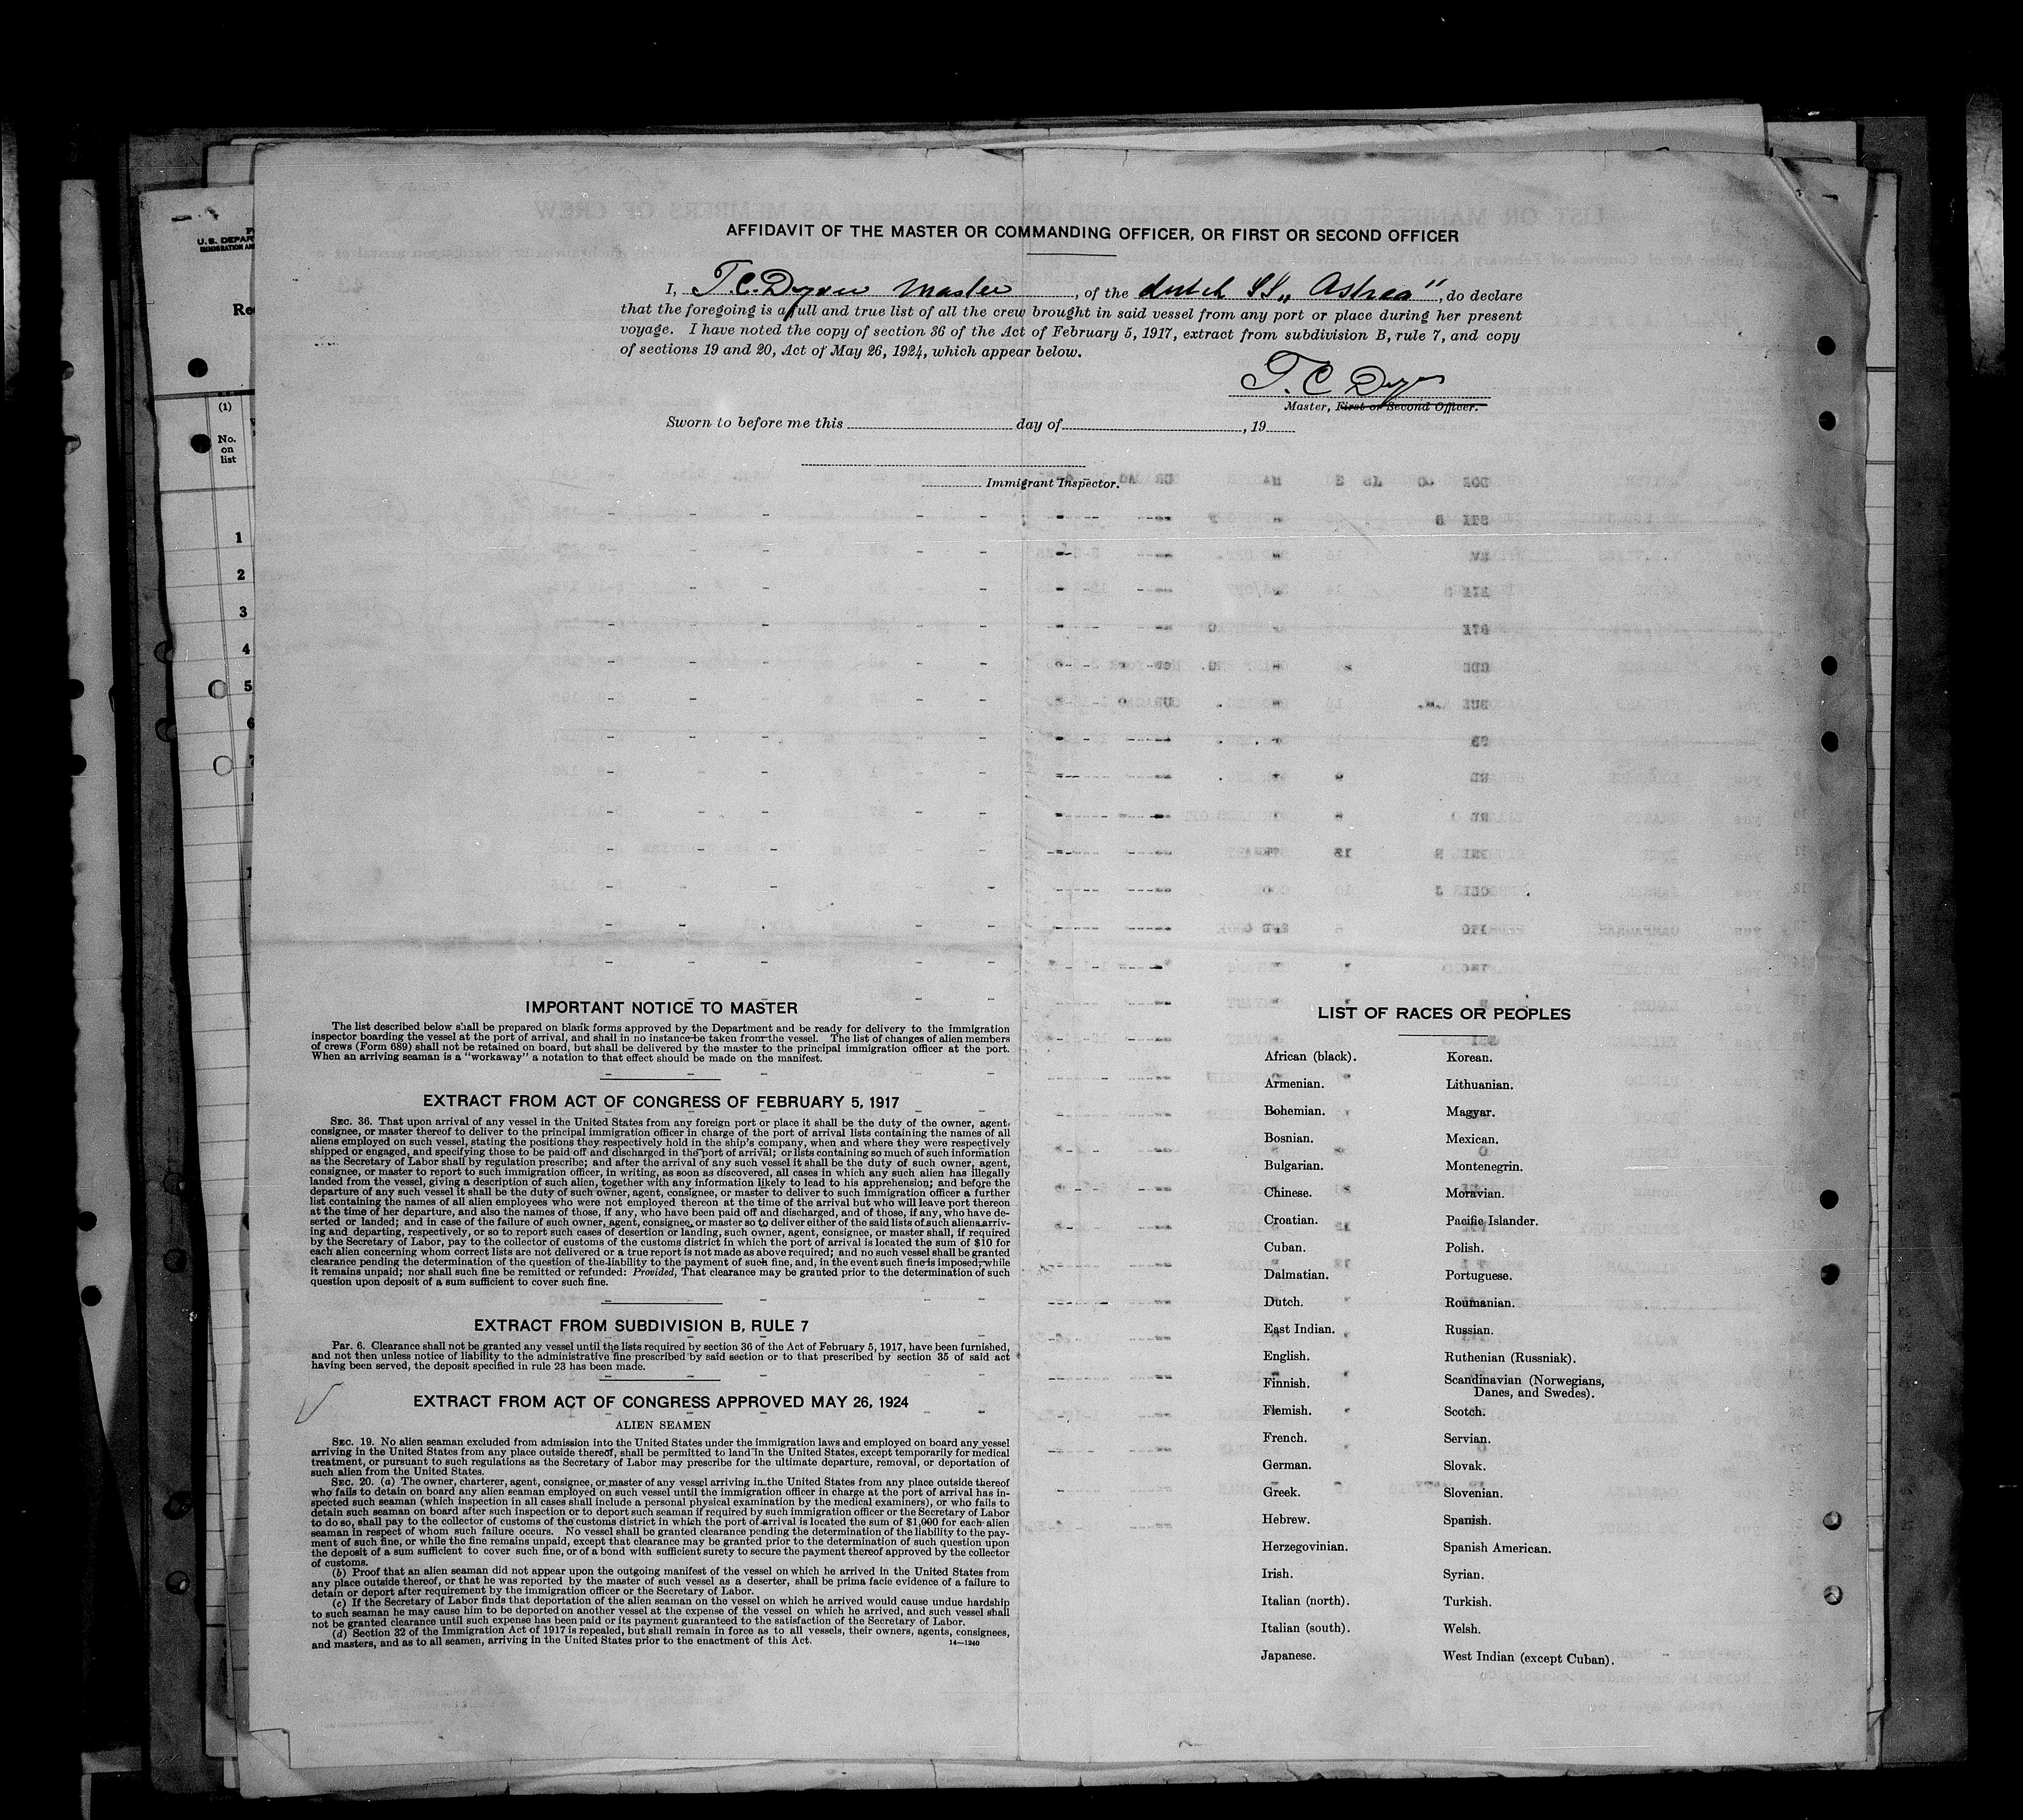 AFFIDAVIT OF THE MASTER OR COMMANDING OFFICER, OR FIRST OR SECOND OFFICER
I, T.C. Master, of the dutch SS „Astrea", do declare
that the foregoing is a full and true list of all the crew brought in said vessel from any port or place during her present
voyage. I have noted the copy of section 36 of the Act of February 5, 1917, extract from subdivision B, rule 7, and copy
of sections 19 and 20, Act of May 26, 1924, which appear below.
T. C
Master, First or Second Officer.
Sworn to before me this day of , 19
Immigrant Inspector.
U.S. DEPAR
(1)
No.
on
list
1
2
3
4
5
6
7
IMPORTANT NOTICE TO MASTER
The list described below shall be prepared on blank forms approved by the Department and be ready for delivery to the immigration
inspector boarding the vessel at the port of arrival, and shall in no instance be taken from the vessel. The list of changes of alien members
of crews (Form 689) shall not be retained on board, but shall be delivered by the master to the principal immigration officer at the port.
When an arriving seaman is a "workaway" a notation to that effect should be made on the manifest.
EXTRACT FROM ACT OF CONGRESS OF FEBRUARY 5, 1917
SEC. 36. That upon arrival of any vessel in the United States from any foreign port or place it shall be the duty of the owner, agent,
consignee, or master thereof to deliver to the principal immigration officer in charge of the port of arrival lists containing the names of all
aliens employed on such vessel, stating the positions they respectively hold in the ship's company, when and where they were respectively
shipped or engaged, and specifying those to be paid off and discharged in the port of arrival; or lists containing so much of such information
as the Secretary of Labor shall by regulation prescribe; and after the arrival of any such vessel it shall be the duty of such owner, agent,
consignee, or master to report to such immigration officer, in writing, as soon as discovered, all cases in which any such alien has illegally
landed from the vessel, giving a description of such alien, together with any information likely to lead to his apprehension; and before the
departure of any such vessel it shall be the duty of such owner, agent, consignee, or master to deliver to such immigration officer a further
list containing the names of all alien employees who were not employed thereon at the time of the arrival but who will leave port thereon
at the time of her departure, and also the names of those, if any, who have been paid off and discharged, and of those, if any, who have de-
serted or landed; and in case of the failure of such owner, agent, consignee, or master so to deliver either of the said lists of such aliens arriv-
ing and departing, respectively, or so to report such cases of desertion or landing, such owner, agent, consignee, or master shall, if required
by the Secretary of Labor, pay to the collector of customs of the customs district in which the port of arrival is located the sum of $10 for
each alien concerning whom correct lists are not delivered or a true report is not made as above required; and no such vessel shall be granted
clearance pending the determination of the question of the liability to the payment of such fine, and, in the event such fine is imposed, while
it remains unpaid; nor shall such fine be remitted or refunded: Provided, That clearance may be granted prior to the determination of such
question upon deposit of a sum sufficient to cover such fine.
EXTRACT FROM SUBDIVISION B, RULE 7
Par. 6. Clearance shall not be granted any vessel until the lists required by section 36 of the Act of February 5, 1917, have been furnished,
and not then unless notice of liability to the administrative fine prescribed by said section or to that prescribed by section 35 of said act
having been served, the deposit specified in rule 23 has been made.
EXTRACT FROM ACT OF CONGRESS APPROVED MAY 26, 1924
ALIEN SEAMEN
SEC. 19. No alien seaman excluded from admission into the United States under the immigration laws and employed on board any vessel
arriving in the United States from any place outside thereof, shall be permitted to land in the United States, except temporarily for medical
treatment, or pursuant to such regulations as the Secretary of Labor may prescribe for the ultimate departure, removal, or deportation of
such alien from the United States.
SEC. 20. (a) The owner, charterer, agent, consignee, or master of any vessel arriving in the United States from any place outside thereof
who fails to detain on board any alien seaman employed on such vessel until the immigration officer in charge at the port of arrival has in-
spected such seaman (which inspection in all cases shall include a personal physical examination by the medical examiners), or who fails to
detain such seaman on board after such inspection or to deport such seaman if required by such immigration officer or the Secretary of Labor
to do so, shall pay to the collector of customs of the customs district in which the port of arrival is located the sum of $1,000 for each alien
seaman in respect of whom such failure occurs. No vessel shall be granted clearance pending the determination of the liability to the pay-
ment of such fine, or while the fine remains unpaid, except that clearance may be granted prior to the determination of such question upon
the deposit of a sum sufficient to cover such fine, or of a bond with sufficient surety to secure the payment thereof approved by the collector
of customs.
(b) Proof that an alien seaman did not appear upon the outgoing manifest of the vessel on which he arrived in the United States from
any place outside thereof, or that he was reported by the master of such vessel as a deserter, shall be prima facie evidence of a failure to
detain or deport after requirement by the immigration officer or the Secretary of Labor.
(c) If the Secretary of Labor finds that deportation of the alien seaman on the vessel on which he arrived would cause undue hardship
to such seaman he may cause him to be deported on another vessel at the expense of the vessel on which he arrived, and such vessel shall
not be granted clearance until such expense has been paid or its payment guaranteed to the satisfaction of the Secretary of Labor.
(d) Section 32 of the Immigration Act of 1917 is repealed, but shall remain in force as to all vessels, their owners, agents, consignees,
and masters, and as to all seamen, arriving in the United States prior to the enactment of this Act. 14—1240
LIST OF RACES OR PEOPLES
African (black). Korean.
Armenian. Lithuanian.
Bohemian. Magyar.
Bosnian. Mexican.
Bulgarian. Montenegrin.
Chinese. Moravian.
Croatian. Pacific Islander.
Cuban. Polish.
Dalmatian. Portuguese.
Dutch. Roumanian.
East Indian. Russian.
English. Ruthenian (Russniak).
Finnish. Scandinavian (Norwegians,
Danes, and Swedes).
Flemish. Scotch.
French. Servian.
German. Slovak.
Greek. Slovenian.
Hebrew. Spanish.
Herzegovinian. Spanish American.
Irish. Syrian.
Italian (north). Turkish.
Italian (south). Welsh.
Japanese. West Indian (except Cuban).